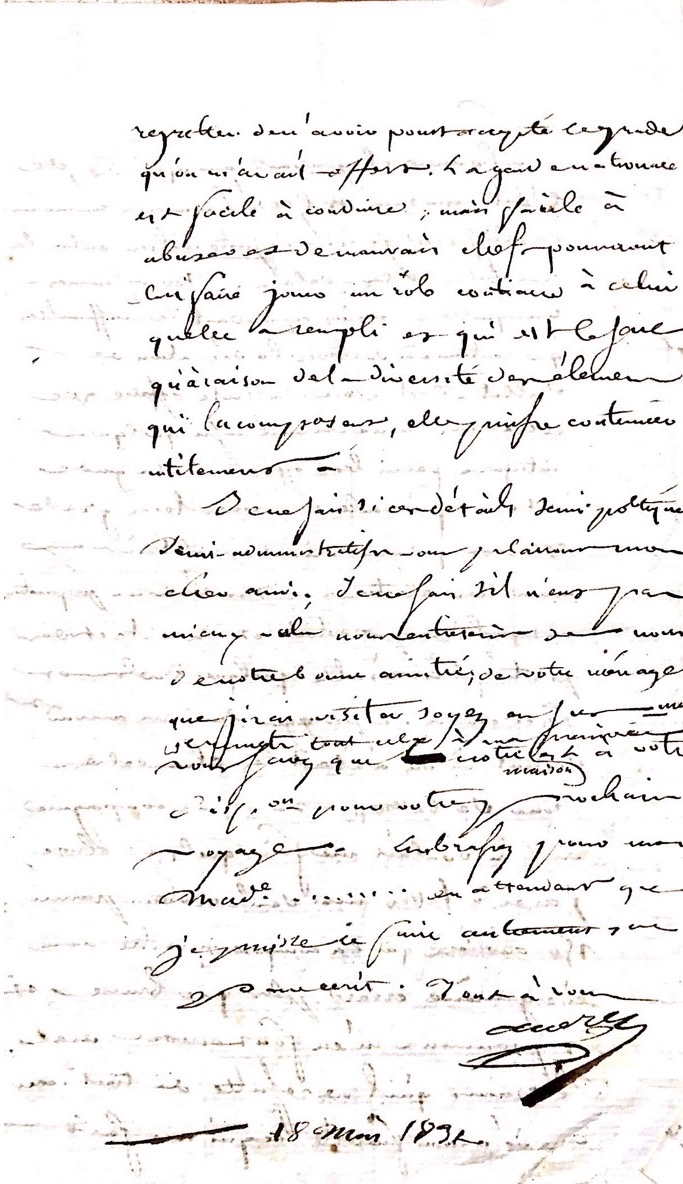 regretter de n'avoir point accepté le grade
qu'on m'avait offert. La garde nationale
est facile à conduire, mais facile à
abuser et de mauvais chefs pourraient
lui faire jouer un rôle contraire à celui
qu'elle a rempli et qui est le seul
qu'à raison de la diversité des élémens
qui la composent, elle puisse continuer
utilement
Je ne sais si ces détails semi politique
semi-administratifs vous plairont mon
cher ami, Je ne sais s'il n'eut pas
mieux valu nous entretenir de nous
de notre bonne amitié, de votre ménage
que j'irai visiter soyez en sur
tout cela à ma première
vous savez que notre est à votre
maison
dispon pour votre prochain
voyage. Embrassez pour moi
Made ........ en attendant que
je puisse le faire autrement que
par écrit. Tout à vous
18 Mars 1831